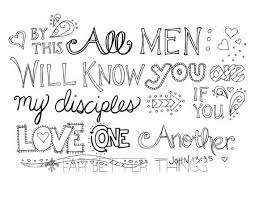 BY THIS All MEN
WILL KNOW you are
my disciples IF YOU
LOVE ONE Another.
JOHN 13:35
FAR BETTER THINGS